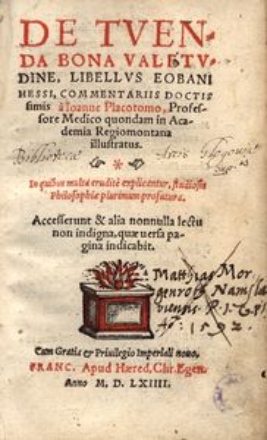 DE TVEN-
DA BONA VALETV-
DINE, LIBELLVS EOBANI
HESSI, COMMENTARIIS DOCTIS
simis à Ioanne Placotomo, Profes-
sore Medico quondam in Aca-
demia Regiomontana
illustratus.
Bibliothecæ
*
In quibus multa eruditè explicantur, studiosis
Philosophiæ plurimum profutura.
Accesserunt & alia nonnulla lectu
non indigna, quæ uersa pa-
gina indicabit.
Matthias Mor-
genroth Namsla
viensis
1592.
Cum Gratia & Priuilegio Imperiali nouo,
FRANC. Apud Hæred. Chr. Egen.
Anno M. D. LXIIII.